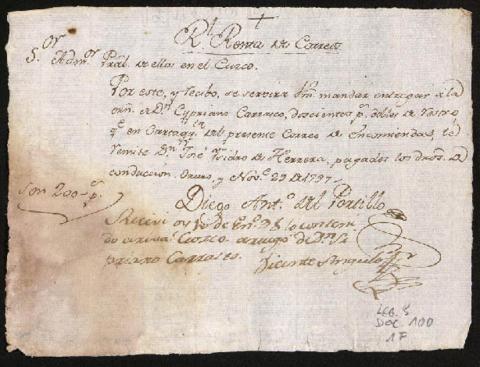 +
Rl. Renta de Correos
Sor. Admor. Pral. de ellas en el Cuzco.
Por este, y recibo, se servirá Vm. mandar entregar a la
orn. de Dn. Cypriano Carrasco, doscientos ps. dobles de
qe. en del presente Correo de Encomiendas, le
remite Dn. José Ysidro de Herrera, pagados los dros. de
conducción. Oruro, y Nove. 29 de 1797
Son 200 ps.
Diego Anto. del Portillo
Recivi oy 10 de En. de 98 lo conteni
do arriva Cuzco a ruego de Dn. Ci
priano Carrasco.
Vicente Angulo
LEG. 5
DOC. 100
1F